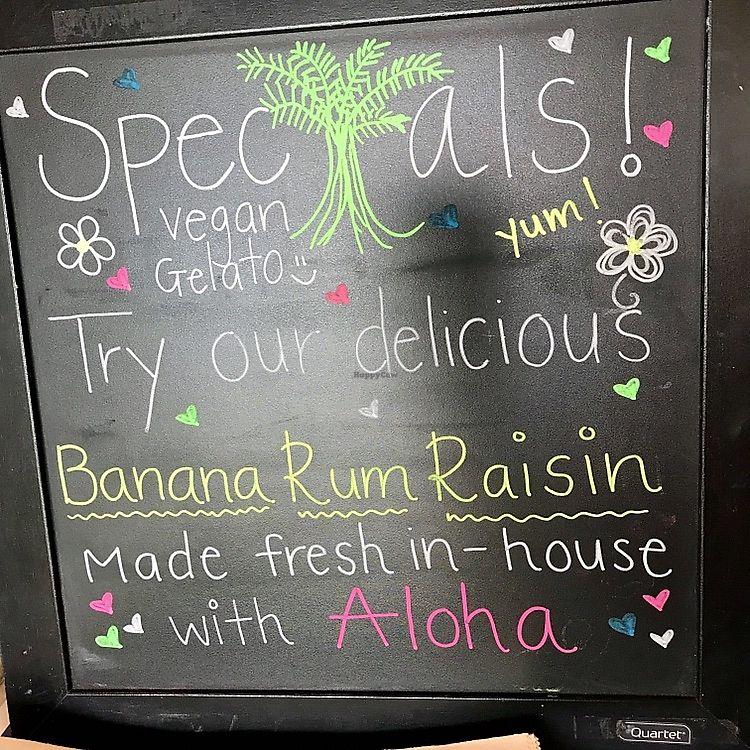 Specials!
vegan
Gelato
yum!
Try our delicious
HappyCow
Banana Rum Raisin
Made fresh in-house
with Aloha
Quartet